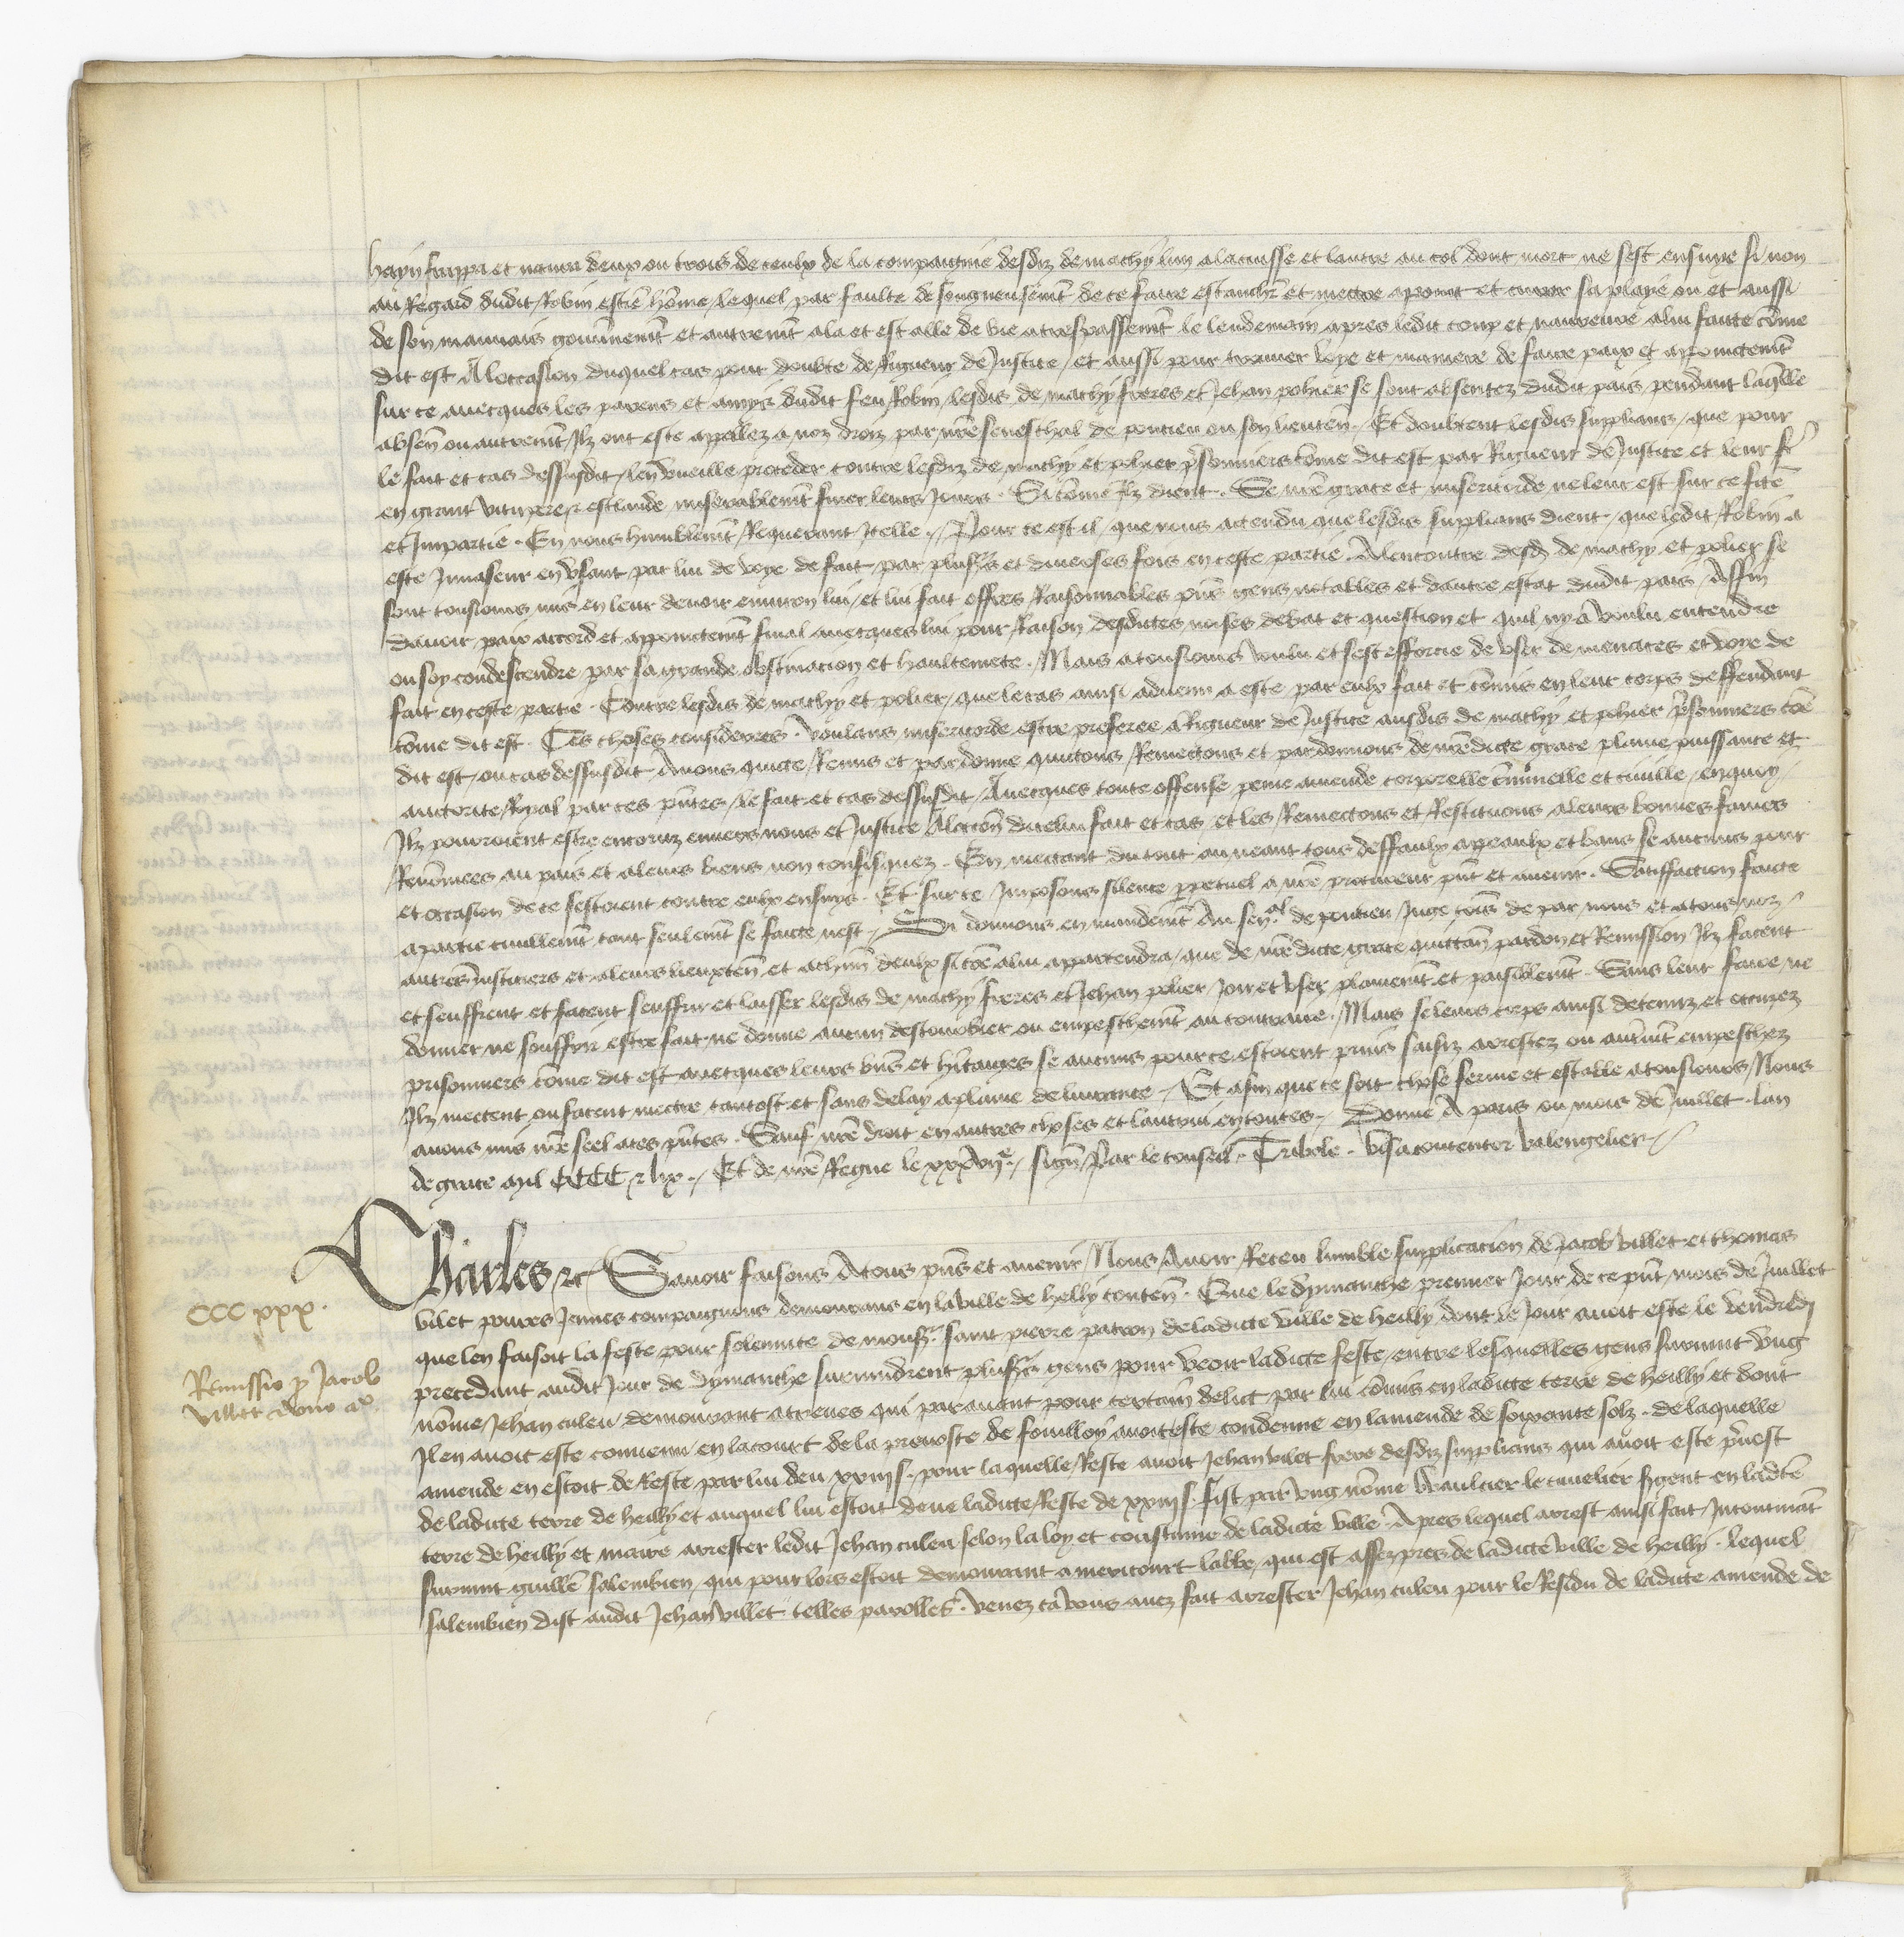 hayn frappa et navra deux ou trois de ceulx de la compaignie desdiz de machy lun a la cuisse et lautre au col dont mort ne sest ensuye si non
au Regard dudit Robin estre hōme lequel par faulte de songneusemēt de ce faire estancher et mectre apoint et curer sa playe ou et aussi
de son mauvais gouvnemēt et autremēt ala et est alle de vie a trespassemēt le lendemain apres ledit coup et navreure a lui faicte cōme
dit est A loccasion duquel cas pour doubte de Rigueur de Justice et aussi pour trouver voye et maniere de faire paix et apoinctemēt
sur ce avecques les parens et amys dudit feu Robin lesdis de machy freres et Jehan polier se sont absentez dudit pais pendant laq̄lle
absen̄ ou autremēt Ilz ont este appellez a noz droiz par nr̄e seneschal de pontieu ou son lieuten̄. Et doubtent lesdis supplians que pour
le fait et cas dessusdit len vueille proceder contre lesdiz de machy et polier p̄sonniers cōme dit est par Rigueur de Justice et leur fe
en grant vitupere et esclande miserablemēt finer leurs Jours. Si cōme Ilz dient. Se nr̄e grace et misericorde ne leur est sur ce fc̄e
et Impartie. En nous humblemēt Requerant Icelle. Pour ce est il que nous actendu que lesdis supplians dient que ledit Robin a
este Invaseur en vsant par lui de voye de fait par plusrs̄ et diverses fois en ceste partie. A lencontre desdiz de machy et polier se
sont tousiours mis en leur devoir environ lui et lui fait offres Raisonnables pūs gens notables et dautre estat dudit pais Affin
davoir paix accord et appoinctemēt final avecques lui pour Raison desdictes noises debat et question et quil ny a voulu entendre
ou soy condescendre par sa grande obstinacion et haultenete. Mais a tousiours voulu et sest efforcie de vser de menaces et voye de
fait en ceste partie. Contre lesdis de machy et polier que le cas ainsi advenu a este par eulx fait et cōmis en leur corps deffendant
cōme dit est. Ces choses considerees. Voulans misericorde estre preferee a Rigueur de Justice ausdis de machy et polier p̄sonniers cōe
dit est ou cas dessusdit Avons quicte Remis et pardonne quictons Remectons et pardonnons de nr̄e dicte grace plaine puissance et
auctorite Royal par ces pn̄tes le fait et cas dessusdit Avecques toute offense peine amende corporelle crīminelle et civille en quoy
Ilz pourroient estre encoruz envers nous et Justice A loccōn diceluj fait et cas et les Remectons et Restituons a leurs bonnes fames
Renōmees au pais et a leurs biens non confisquez. En mectant du tout au neant tous deffaulx appeaulx et bans se aucuns pour
et occasion de ce sestoient contre eulx ensuys. Et sur ce Imposons silence p̄petuel a nr̄e procureur pn̄t et avenir. Satiffaction faicte
a partie civillemēt tant seulemēt se faicte nest. Si donnons en mandemēt Au senal de pontieu Juge cōis de par nous et a tous noz
autres Justiciers et a leurs lieuxten̄ et achūn deulx si cōe a lui appartendra que de nr̄e dicte grace quictan̄ pardon et Remission Ilz facent
et seuffrent et facent seuffrir et laisser lesdis de machy freres et Jehan polier Joir et vser plainemēt et paisiblemēt. Sans leur faire ne
donner ne souffrir estre fait ne donne aucun destourbier ou empeschemēt au contraire. Mais se leurs corps ainsi detenuz et occupez
prisonniers cōme dit est avecques leurs biēs et hītaiges se aucuns pour ce estoient prins saisiz arrestez ou autremēt empeschez
Ilz mectent ou facent mectre tantost et sans delay a plaine delivrance. Et afin que ce soit chose ferme et estable a tousiours Nous
avons mis nr̄e seel a ces pn̄tes. Sauf nr̄e droit en autres choses et lautruj en toutes. Donne A paris ou mois de Juillet. lan
de grace mil CCCC et lix. Et de nr̄e Regne le xxxvije. sign̄ Par le conseil. Tribole. visa contentor valengelier
Charles etc Savoir faisons A tous pn̄s et avenir Nous Avoir Receu lumble supplicacion de Jacob villet et thomas
vilet povres Jeunes compaignons demourans en la ville de heilly conten̄. Que le dymanche premier Jour de ce pn̄t mois de Juillet
que len faisoit la feste pour solennite de monsr. saint pierre patron de ladicte ville de heilly dont le Jour avoit este le vendredj
precedant audit Jour de dymanche survindrent plusrs̄ gens pour veoir ladicte feste entre lesquelles gens survint vng
nōme Jehan culeu demourant a treues qui par avant pour certain delict par lui cōmis en ladicte terre de heilly et dont
Il en avoit este convenu en la court de la prevoste de fouilloy avoit este condenne en lamende de soixante solz. de laquelle
amende en estoit de Reste par lui deu xxiiij s. pour laquelle Reste avoit Jehan vilet frere desdiz supplians qui avoit este p̄vost
de ladicte terre de heilly et auquel lui estoit deue ladicte Reste de xxiiij s. fist par vng nōme Waultier le cuvelier sergent en ladc̄e
terre de heilly et maire arrester ledit Jehan culeu selon la loy et coustume de ladicte ville. Apres lequel arrest ainsi fait Incontināt
survint guillē salembien qui pour lors estoit demourant a mericourt labbe qui est assez pres de ladicte ville de heilly. lequel
salembien dist audit Jehan villet telles parolles. venez ca vous avez fait arrester Jehan culeu pour le Residu de ladicte amende de
CCC xxx.
Remissio p̄ Jacob
villet